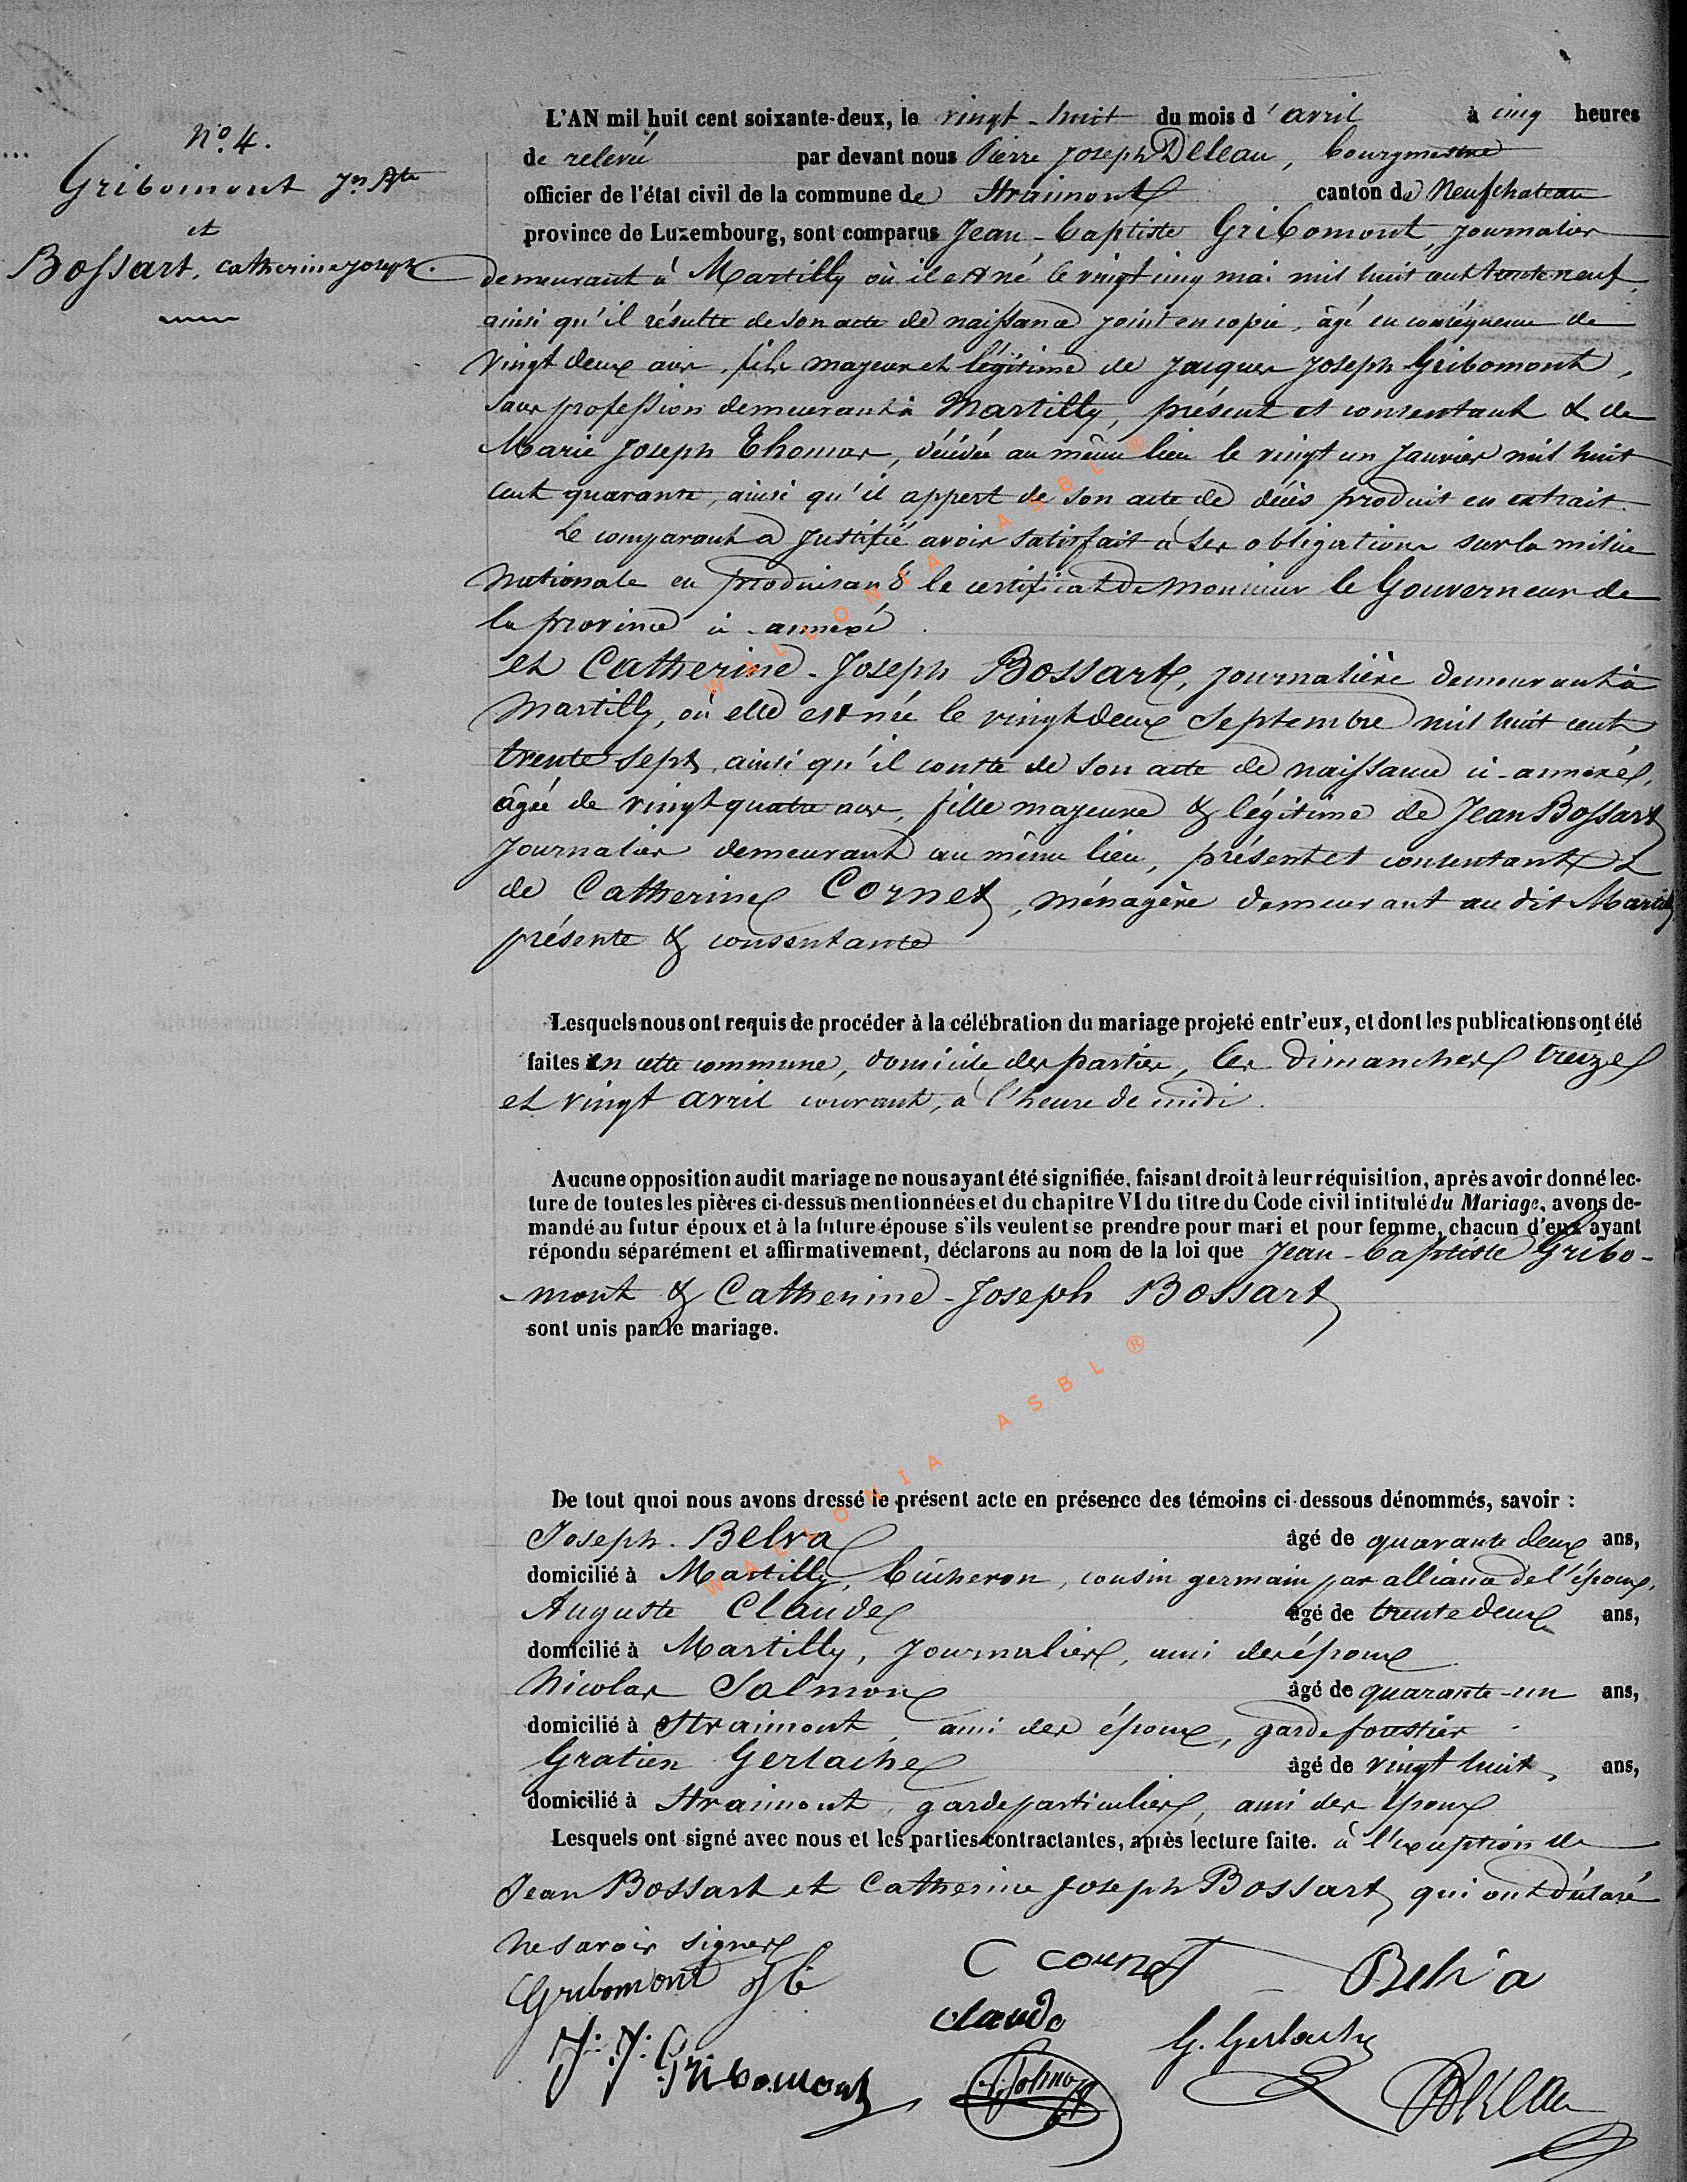 N.º 4.
Gribomont Jn Bte
et
Bossart, Catherine Joseph.
L'AN mil huit cent soixante-deux, le vingt-huit du mois d'avril à cinq heures
de relevée par devant nous Pierre Joseph Deleau, bourgmestre
officier de l'état civil de la commune de Straimont canton de Neufchateau
province de Luxembourg, sont comparus Jean-Baptiste Gribomont, journalier
demeurant à Martilly où il est né le vingt cinq mai mil huit cent trente neuf
ainsi qu'il résulte de son acte de naissance joint en copie, âgé en conséquence de
vingt deux ans, fils majeur et légitime de Jacques Joseph Gribomont,
sans profession demeurant à Martilly, présent et consentant & de
Marie Joseph Thomas, décédée au même lieu le vingt un Janvier mil huit
cent quarante, ainsi qu'il appert de son acte de décès produit en extrait.
Le comparant a justifié avoir satisfait à ses obligations sur la milice
nationale en produisant le certificat de monsieur le Gouverneur de
la province ci-annexé.
et Catherine-Joseph Bossart, journalière demeurant à
Martilly, où elle est née le vingt deux Septembre mil huit cent
trente sept, ainsi qu'il conste de son acte de naissance ci-annexé,
âgée de vingt quatre ans, fille majeure & légitime de Jean Bossart
journalier demeurant au même lieu, présent et consentant &
de Catherine Cornet, ménagère demeurant au dit Martilly
présente & consentante
Lesquels nous ont requis de procéder à la célébration du mariage projeté entr'eux, et dont les publications ont été
faites en cette commune, domicile des parties, les dimanches treize
et vingt avril courant, à l'heure de midi.
Aucune opposition audit mariage ne nous ayant été signifiée, faisant droit à leur réquisition, après avoir donné lec-
ture de toutes les pièces ci-dessus mentionnées et du chapitre VI du titre du Code civil intitulé du Mariage, avons de-
mandé au futur époux et à la future épouse s'ils veulent se prendre pour mari et pour femme, chacun d'eux ayant
répondu séparément et affirmativement, déclarons au nom de la loi que Jean-Baptiste Gribo-
-mont & Catherine-Joseph Bossart
sont unis par le mariage.
De tout quoi nous avons dressé le présent acte en présence des témoins ci-dessous dénommés, savoir :
Joseph Belva âgé de quarante deux ans,
domicilié à Martilly, bûcheron, cousin germain par alliance de l'époux,
Auguste Claude âgé de trente deux ans,
domicilié à Martilly, journalier, ami des époux
Nicolas Salmon âgé de quarante-un ans,
domicilié à Straimont, ami des époux, garde forestier
Gratien Gerlache âgé de vingt huit, ans,
domicilié à Straimont, garde particulier, ami des époux
Lesquels ont signé avec nous et les parties contractantes, après lecture faite. à l'exception de
Jean Bossart et Catherine Joseph Bossart qui ont déclaré
ne savoir signer
Gribomont JB C cornet Belva
claude G. Gerlache
J: J: Gribomont Deleau
WALLONIA ASBL ®
WALLONIA ASBL ®